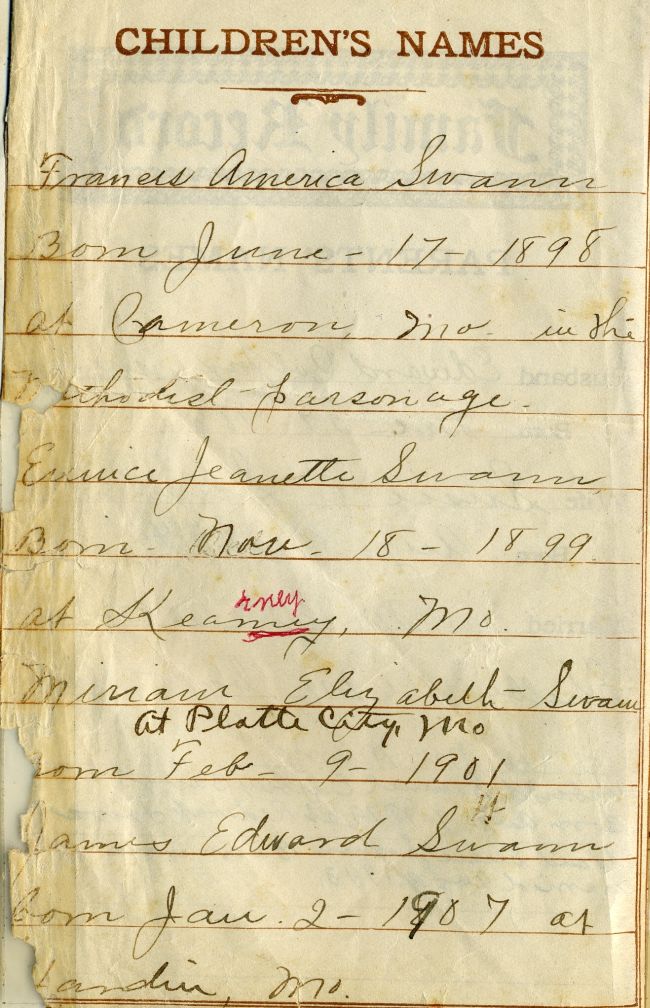 CHILDREN'S NAMES
Francis America Swann
Born June - 17 - 1898
at Cameron, Mo. in the
Methodist parsonage.
Eunice Jeanette Swann
Born - Nov - 18 - 1899
rney
at Kearney, Mo.
Miriam Elizabeth Swann
at Platte City, Mo
Born Feb - 9 - 1901
James Edward Swann
born Jan. 2 - 1907 at
Hardin, Mo.